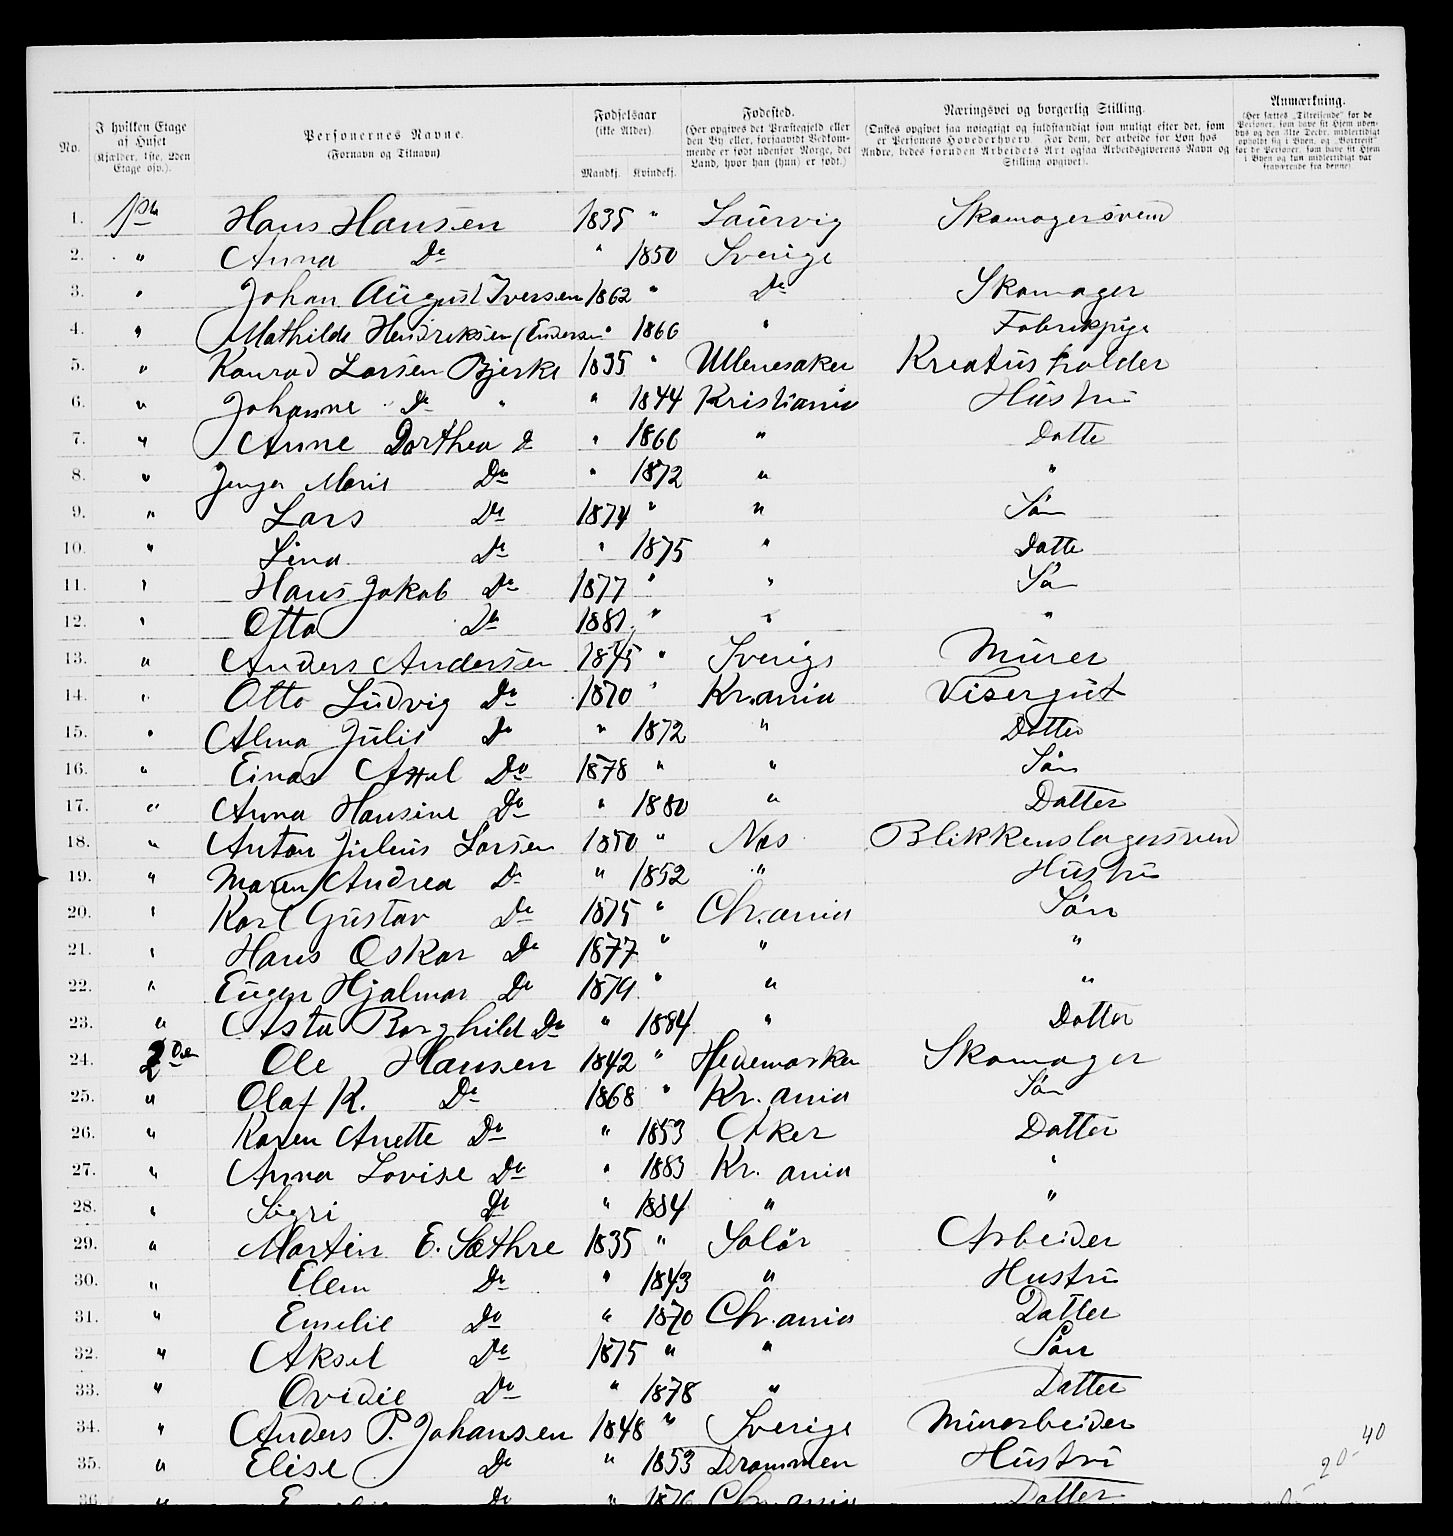 No. I hvilken Etage af Huset (Kjælder, 1ste, 2den Etage osv.). Personernes Navne. (Fornavn og Tilnavn) Fødselsaar (ikke Alder) Mandkj. Kvindekj. Fødested. (Her opgives det Præstegjeld eller den By eller, forsaavidt Vedkommende er født udenfor Norge, det Land, hvor han (hun) er født.) Næringsvei og borgerlig Stilling. (Ønskes opgivet saa nøiagtigt og fuldstændigt som muligt efter det, som er Personens Hovederhverv. For dem, der arbeide for Løn hos Andre, bedes foruden Arbeidets Art ogsaa Arbeidsgiverens Navn og Stilling opgivet). Anmærkning. (Her sættes „Tilreisende" for de Personer, som have sit Hjem udenbys og den 31te Decbr. midlertidigt opholdt sig i Byen, og „Bortreist" for de Personer, som have sit Hjem i Byen og kun midlertidigt var fraværende fra denne).
1. 1ste Hans Hansen 1835 " Laurvig Skomagersvend
2. " Anna Do " 1850 Sverige
3. " Johan August Iversen 1862 " Do Skomager
4. " Mathilde Hendriksen (Andersen " 1866 " Fabrikpige
5. " Konrad Larsen Bjerke 1835 " Ullensaker Kreaturholder
6. " Johanne Do " " 1844 Kristiania Hustru
7. " Anne Dorthea Do " 1866 " Datte
8. " Jenger Marie Do " 1872 " "
9. " Lars Do 1874 " " Søn
10. " Lina Do " 1875 " Datte
11. " Hans Jakob Do 1877 " " Søn
12. " Otto Do 1881 " " "
13. " Anders Andersen 1845 " Sverige Murer
14. " Otto Ludvig Do 1870 " Kr.ania Visergut
15. " Alma Julie Do " 1872 " Datter
16. " Einar Axel Do 1878 " " Søn
17. " Anna Hansine Do " 1880 " Datter
18. " Anton Julius Larsen 1850 " Nes Blikkenslagersvend
19. " Maren Andrea Do " 1852 " Hustru
20. " Karl Gustav Do 1875 " Chr.ania Søn
21. " Hans Oskar Do 1877 " " "
22. " Eugen Hjalmar Do 1879 " " "
23. " Asta Borghild Do " 1884 " Datter
24. 2den Ole Hansen 1842 " Hedemarken Skomager
25. " Olaf K. Do 1868 " Kr.ania Søn
26. " Karen Anette Do " 1853 Aker Datter
27. " Anna Lovise Do " 1883 Kr.ania "
28. " Sigri Do " 1884 " "
29. " Martin E. Sæthre 1835 " Solør Arbeider
30. " Elen Do " 1843 " Hustru
31. " Emelie Do " 1870 Chr.ania Datter
32. " Aksel Do 1875 " " Søn
33. " Ovidie Do " 1878 " Datter
34. " Anders P. Johansen 1848 " Sverige Murarbeider
35. " Elise Do " 1853 Drammen Hustru
20-40
36. " Do " 1876 Chr.ania Datter